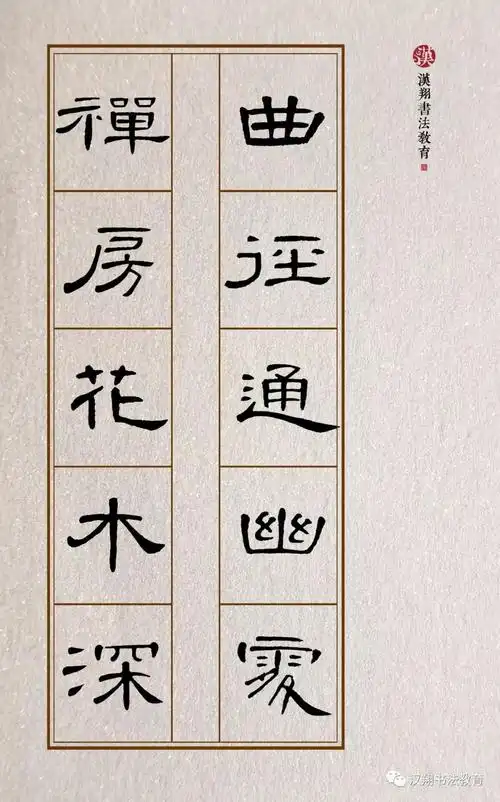 曲徑通幽處
禪房花木深
漢
漢翔書法教育
汉翔书法教育